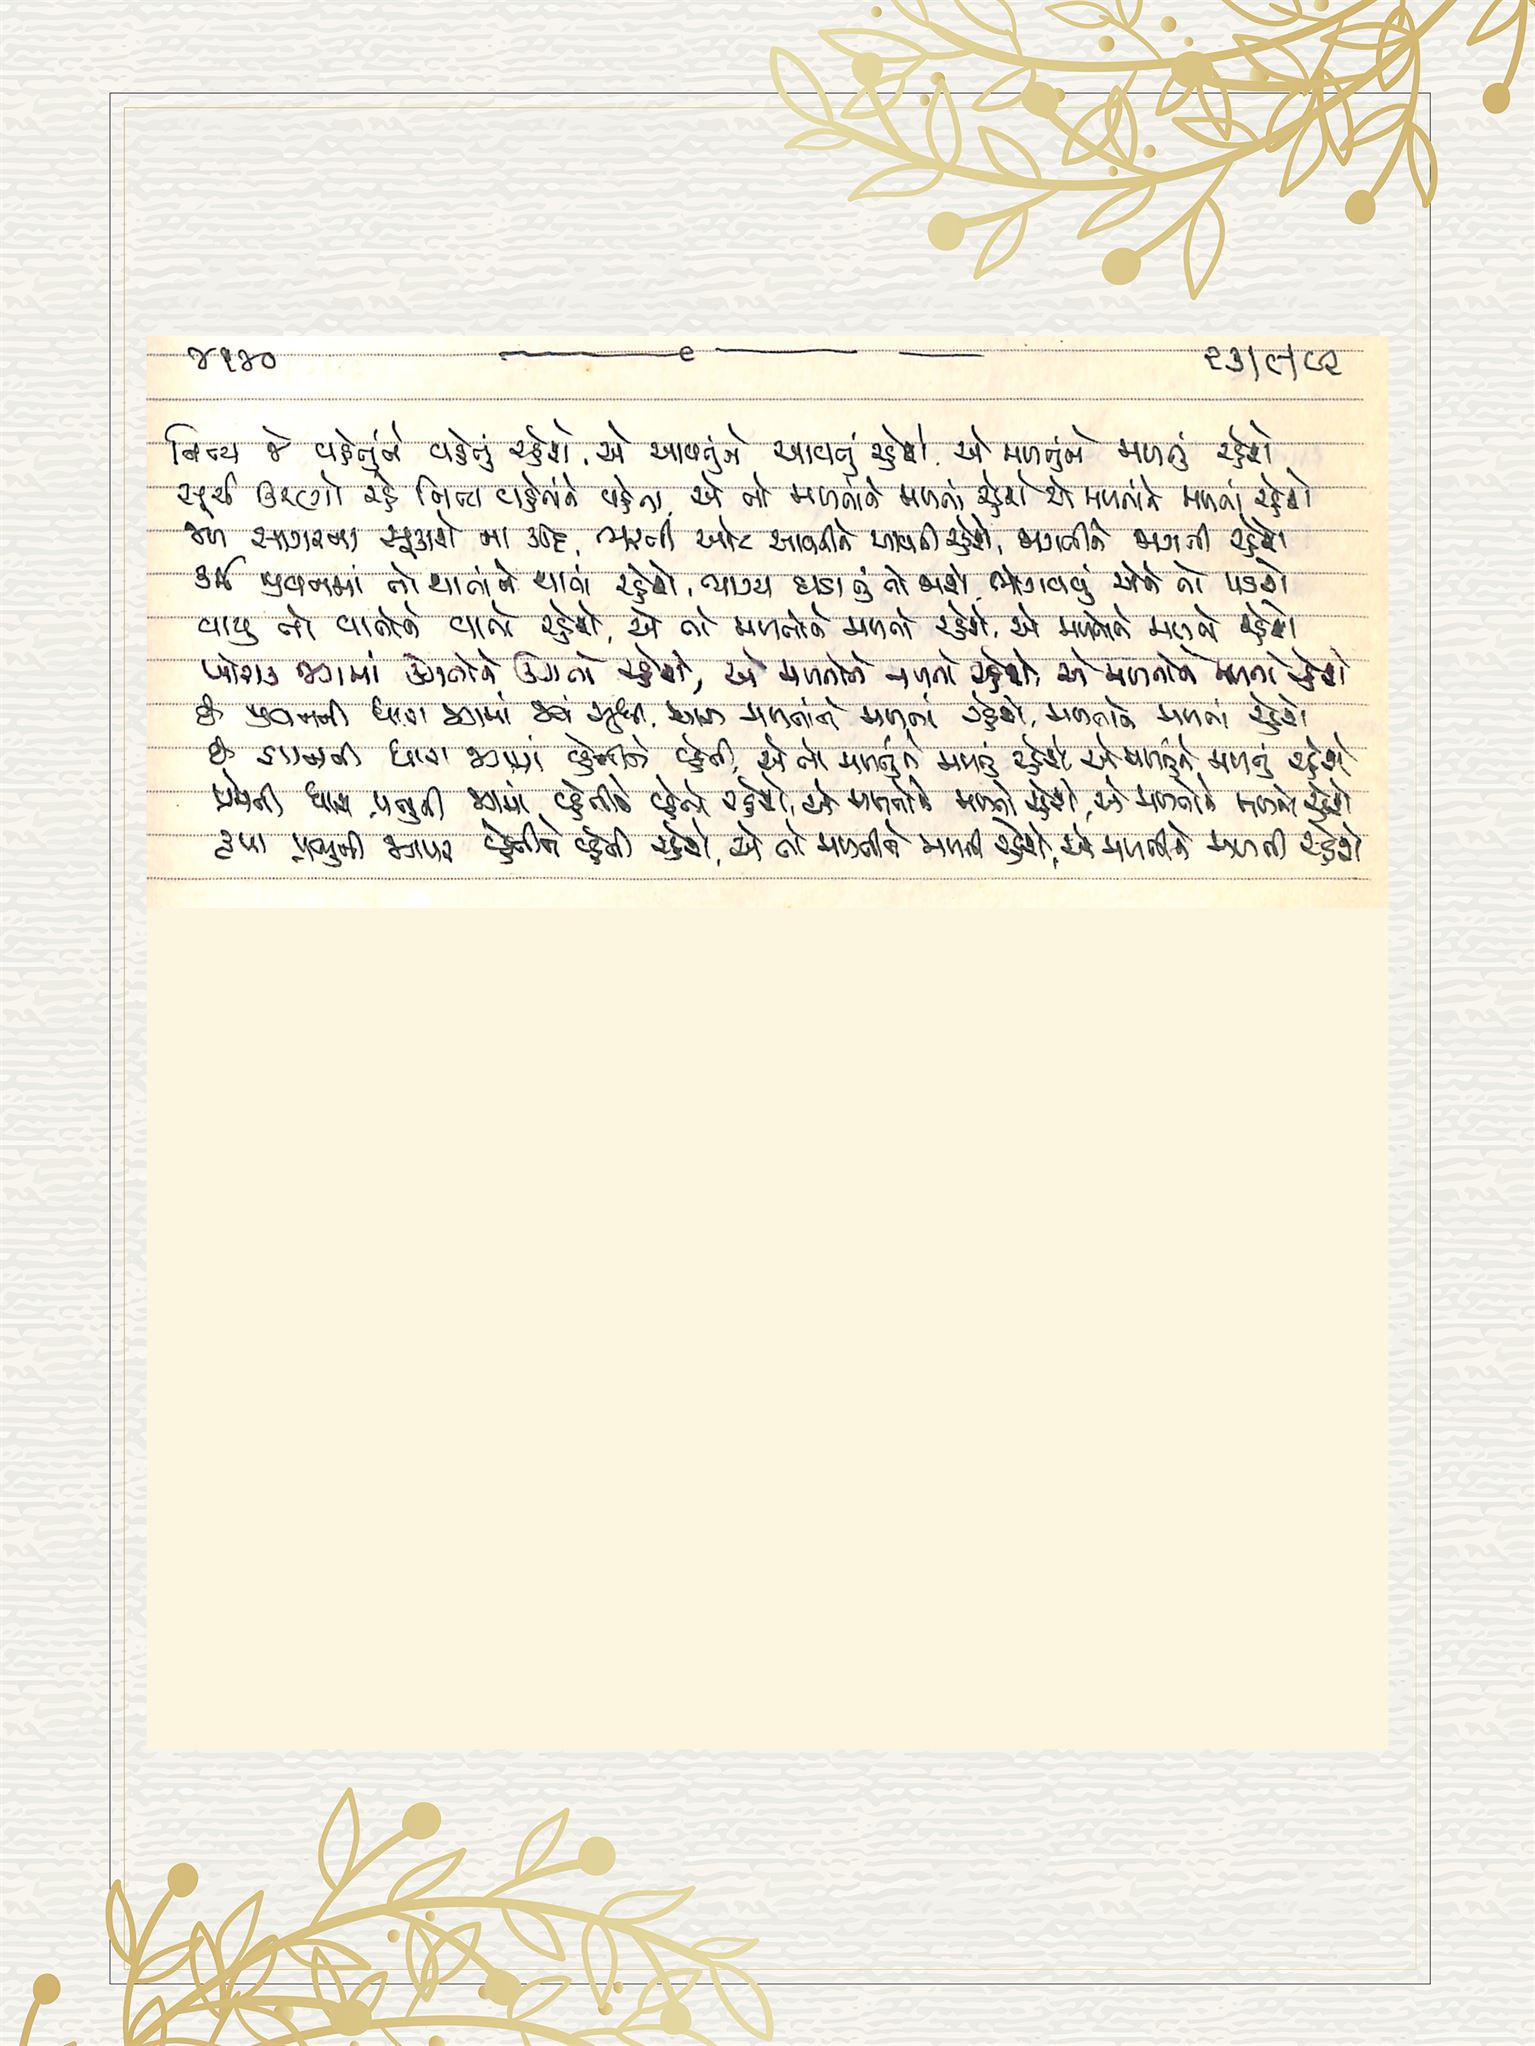 ૪૧૪૦ ૨૩/૯/૯૨
નિત્ય જે વહેતુંને વહેતું રહેશે, એ આવતુંને આવતું રહેશે, એ મળતુંને મળતું રહેશે
સૂર્ય કિરણો રહે નિત્ય વહેતાંને વહેતા, એ તો મળતાંને મળતાં રહેશે એ મળતાંને મળતાં રહેશે
જળ સાગરના સૂકાશે ના કદી, ભરતી ઓટ આવતીને આવતી રહેશે, ભાગતીને ભાગતી રહેશે
કર્મ જીવનમાં તો થાતાંને થાતાં રહેશે, ભાગ્ય ઘડાતું તો જાશે, ભોગવવું એને તો પડશે
વાયુ તો વાતોને વાતો રહેશે, એ તો મળતોને મળતો રહેશે, એ મળતોને મળતો રહેશે
ખોરાક જગમાં ઊગતોને ઊગતો રહેશે, એ મળતોને મળતો રહેશે, એ મળતોને મળતો રહેશે
છે જીવનની ધારા જગમાં જ્યાં સુધી, મળતાંને મળતાં રહેશે, મળતાંને મળતાં રહેશે
છે જ્ઞાનની ધારા જગમાં વ્હેતીને વ્હેતી, એ તો મળતુંને મળતું રહેશે, એ મળતુંને મળતું રહેશે
પ્રેમની ધારા પ્રભુની જગમાં વ્હેતીને વ્હેતી રહેશે, એ મળતોને મળતો રહેશે, એ મળતોને મળતો રહેશે
કૃપા પ્રભુની જગપર વ્હેતીને વ્હેતી રહેશે, એ તો મળતીને મળતી રહેશે, એ મળતીને મળતી રહેશે